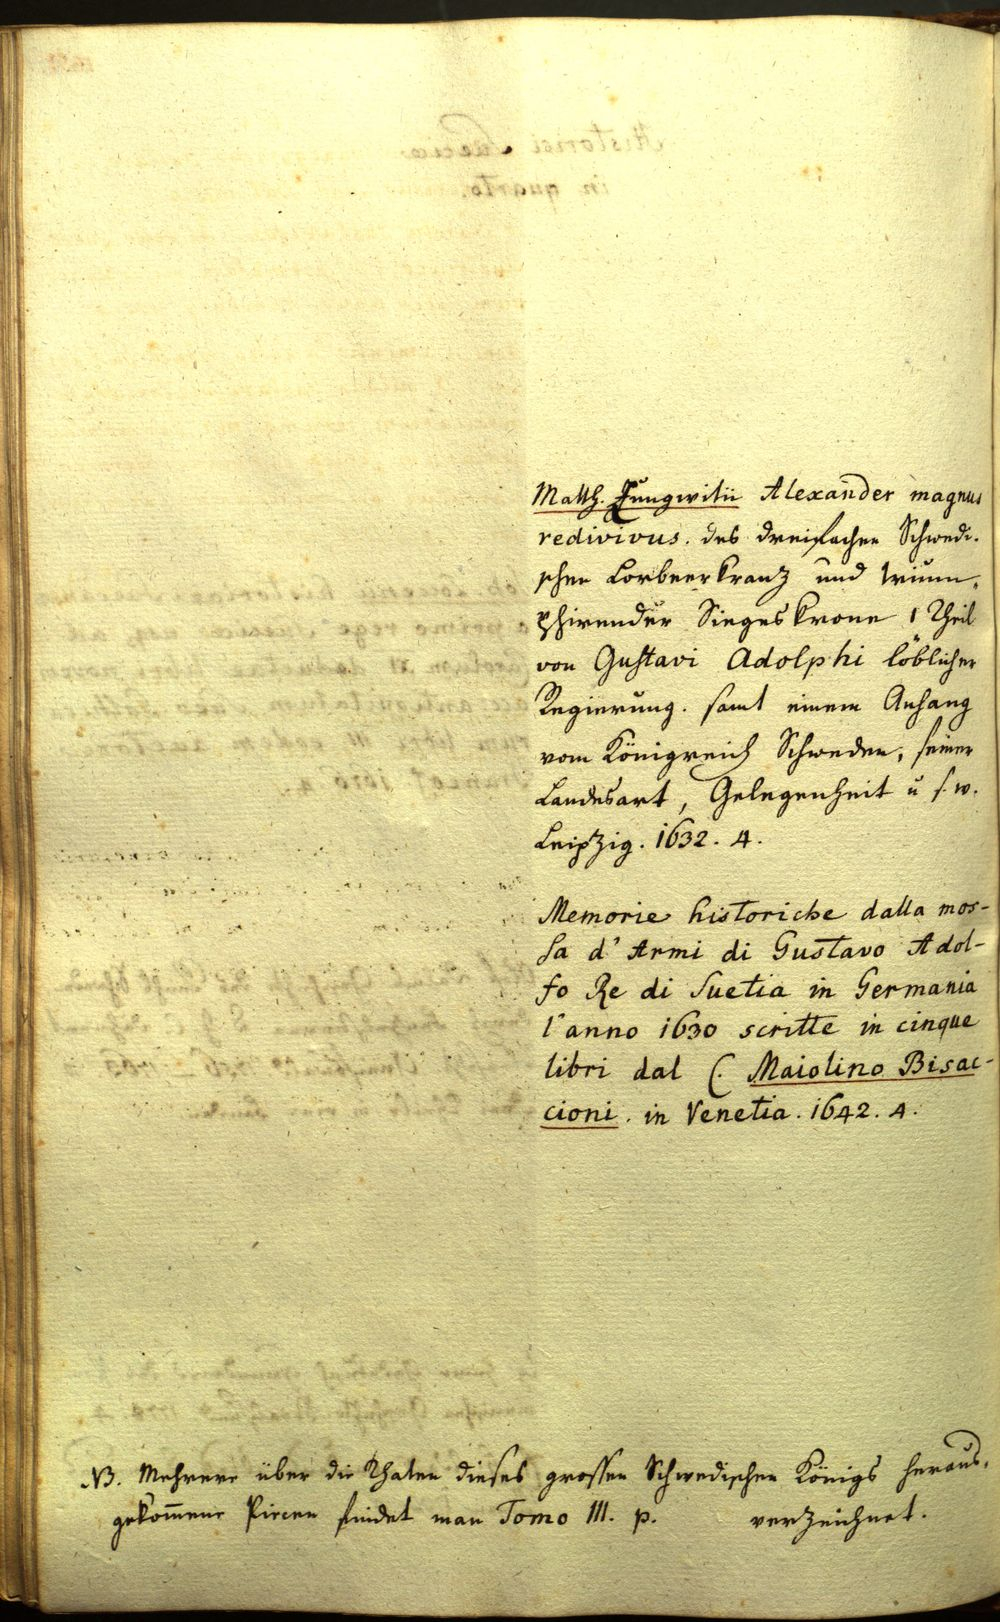 Matth. Lungwitii Alexander magnus
redivivus. das dreifachen Schwedi-
schen Lorbeerkranz und trium-
phirender Siegeskrone 1 Theil
von Gustavi Adolphi löblicher
Regierung. samt einem Anhang
vom Königreich Schweden, seiner
Landesart, Gelegenheit u s. w.
Leipzig. 1632. 4.
Memorie historiche dalla mos-
sa d' Armi di Gustavo Adol-
fo Re di Suetia in Germania
l'anno 1630 scritte in cinque
libri dal C. Maiolino Bisac-
cioni. in Venetia. 1642. 4.
NB. Mehrere über die Thaten dieses grossen Schwedischen Königs heraus-
gekom̄ene Piecen findet man Tomo III. p. verzeichnet.